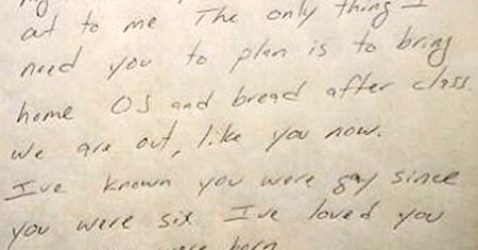 out to me The only thing I
need you to plan is to bring
home OJ and bread after class.
We are out, like you now.
I've known you were gay since
you were six I've loved you
were born